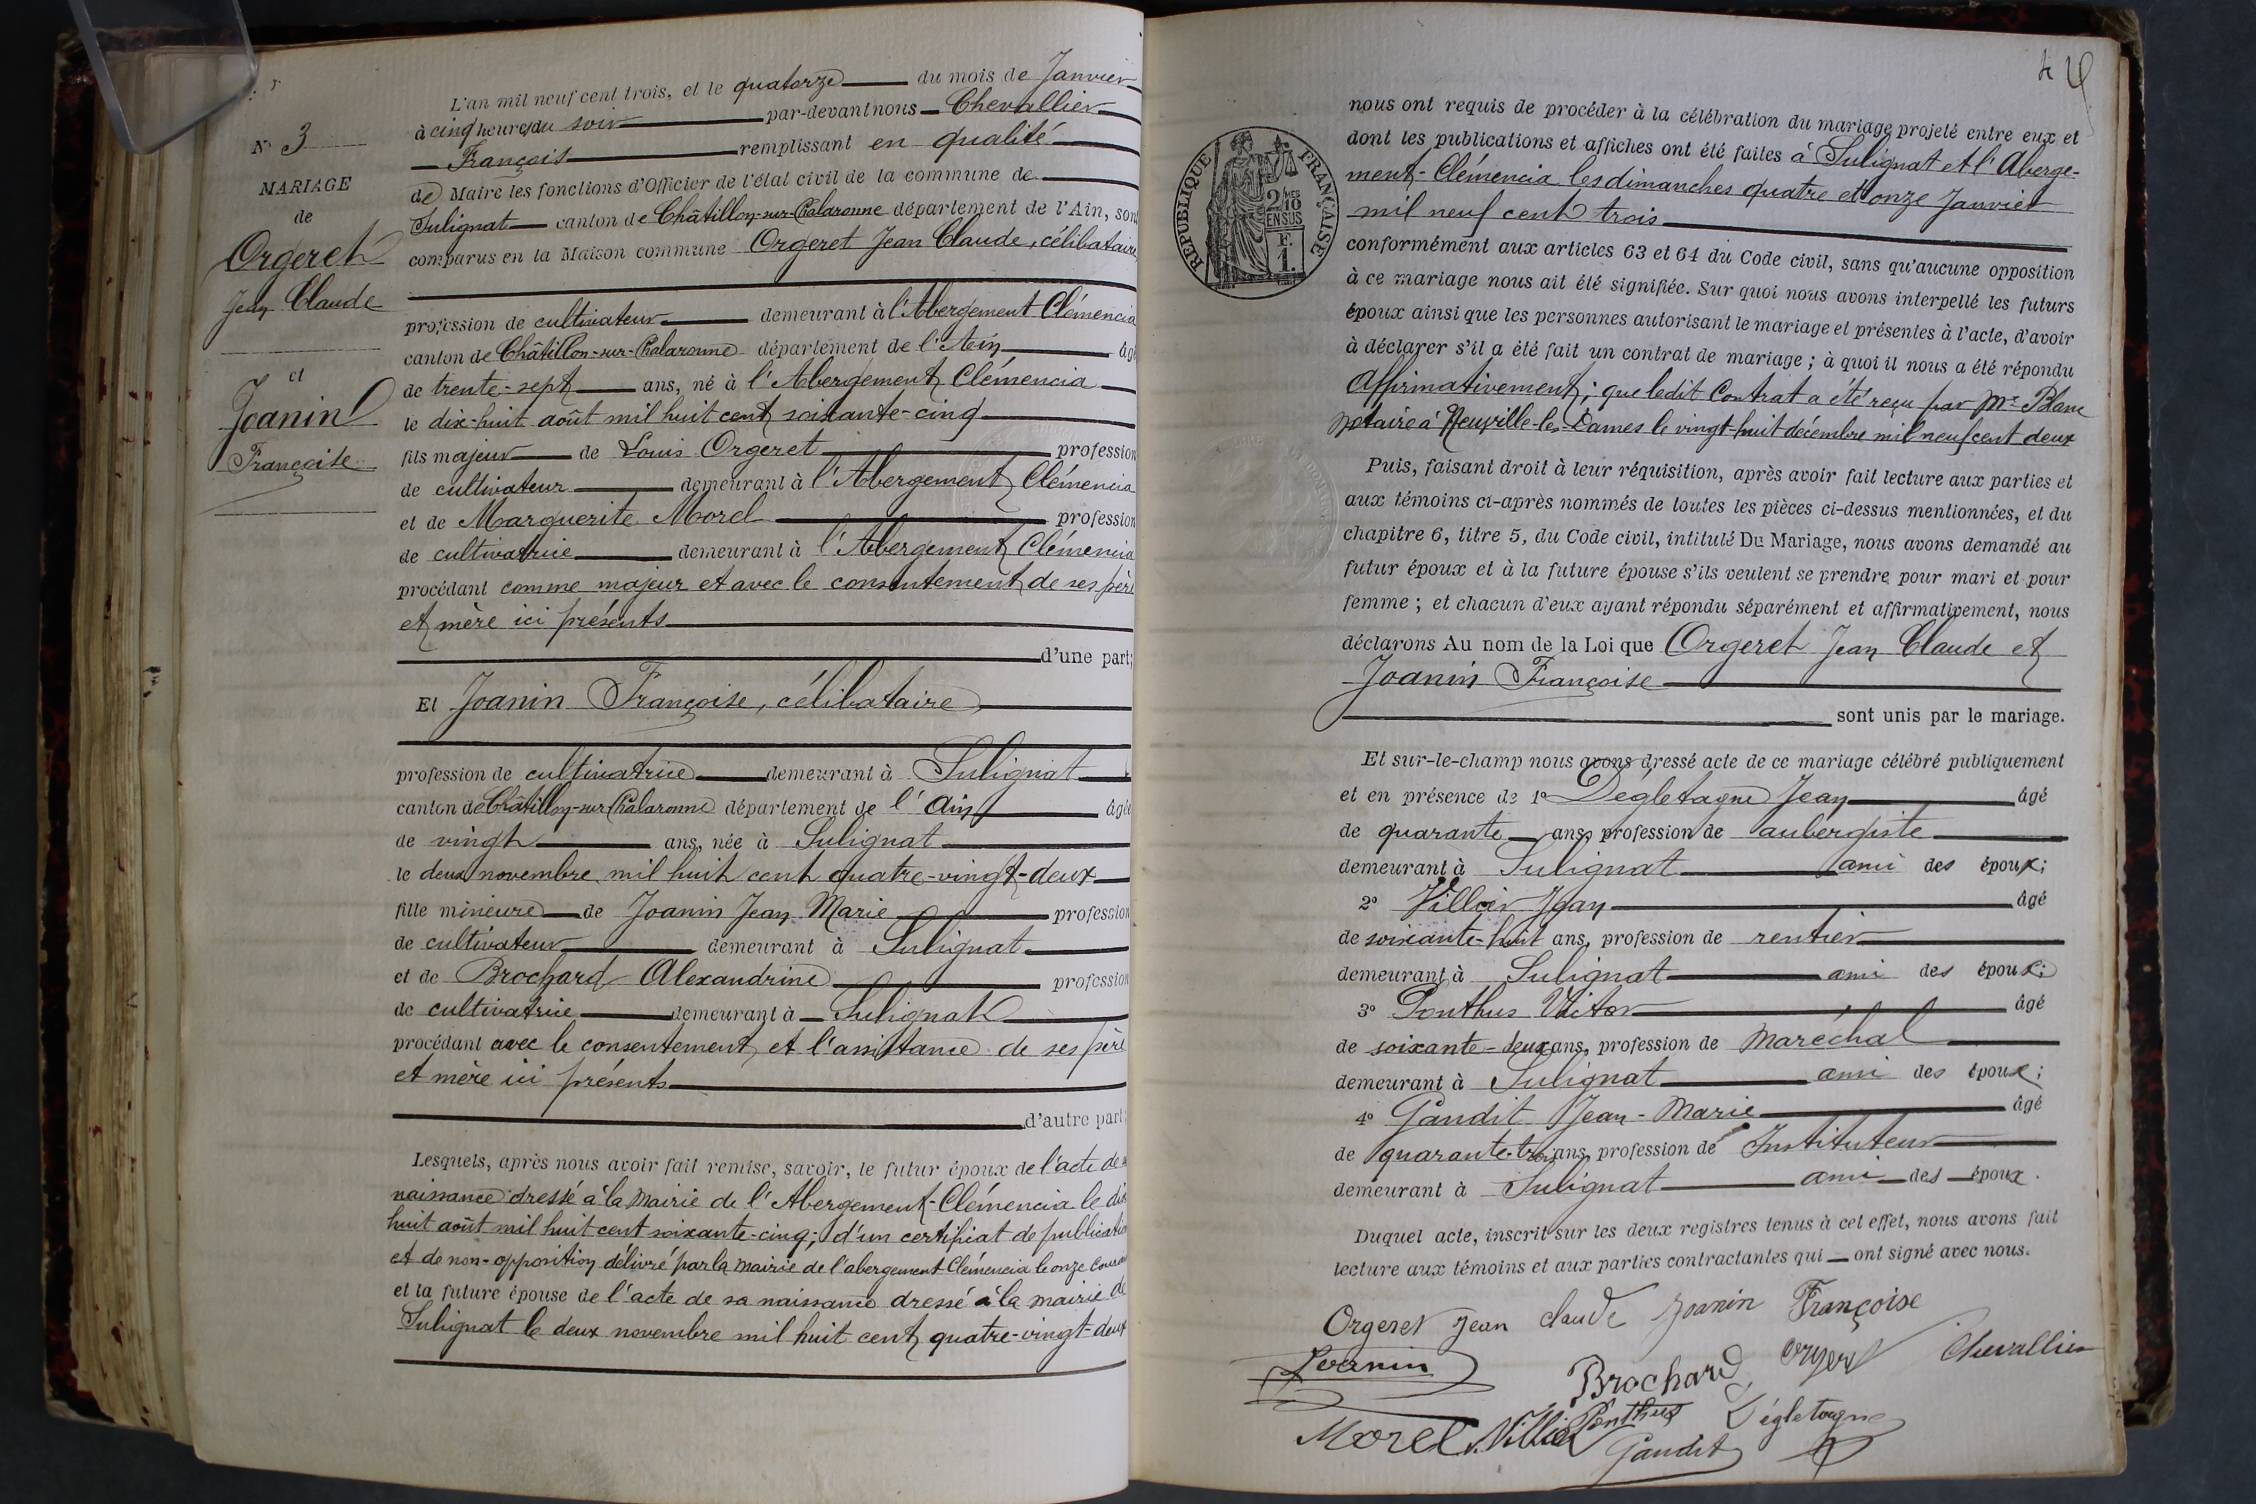 N° 3
MARIAGE
de
Orgeret
Jean Claude
et
Joanin
Françoise
L'an mil neuf cent trois, et le quatorze du mois de Janvier
à cinq heures du soir par-devant nous Chevallier
François remplissant en qualité
de Maire les fonctions d'Officier de l'état civil de la commune de
Sulignat canton de Châtillon-sur-Chalaronne département de l'Ain, sont
comparus en la Maison commune Orgeret Jean Claude, célibataire
profession de cultivateur demeurant à l'Abergement Clémencia
canton de Châtillon-sur-Chalaronne département de l'Ain âgé
de trente-sept ans, né à l'Abergement Clémencia
le dix-huit août mil huit cent soixante-cinq
fils majeur de Louis Orgeret profession
de cultivateur demeurant à l'Abergement Clémencia
et de Marguerite Morel profession
de cultivatrice demeurant à l'Abergement Clémencia
procédant comme majeur et avec le consentement de ses père
et mère ici présents
d'une part;
Et Joanin Françoise, célibataire
profession de cultivatrice demeurant à Sulignat
canton de Châtillon-sur-Chalaronne département de l'Ain âgée
de vingt ans, née à Sulignat
le deux novembre mil huit cent quatre-vingt-deux
fille mineure de Joanin Jean Marie profession
de cultivateur demeurant à Sulignat
et de Brochard Alexandrine profession
de cultivatrice demeurant à Sulignat
procédant avec le consentement et l'assistance de ses père
et mère ici présents
d'autre part;
Lesquels, après nous avoir fait remise, savoir, le futur époux de l'acte de
naissance dressé à la mairie de l'Abergement-Clémencia le dix
huit août mil huit cent soixante-cinq; d'un certificat de publication
et de non-opposition délivré par la mairie de l'abergement Clémencia le onze courant
et la future épouse de l'acte de sa naissance dressé à la mairie de
Sulignat le deux novembre mil huit cent quatre-vingt-deux
4
RÉPUBLIQUE FRANÇAISE
2/10 EN SUS
F. 1.
nous ont requis de procéder à la célébration du mariage projeté entre eux et
dont les publications et affiches ont été faites à Sulignat et l'Aberge-
ment-Clémencia les dimanches quatre et onze Janvier
mil neuf cent trois
conformément aux articles 63 et 64 du Code civil, sans qu'aucune opposition
à ce mariage nous ait été signifiée. Sur quoi nous avons interpellé les futurs
époux ainsi que les personnes autorisant le mariage et présentes à l'acte, d'avoir
à déclarer s'il a été fait un contrat de mariage ; à quoi il nous a été répondu
Affirmativement; que ledit Contrat a été reçu par Me Blanc
notaire à Neuville-les-Dames le vingt huit décembre mil neuf cent deux
Puis, faisant droit à leur réquisition, après avoir fait lecture aux parties et
aux témoins ci-après nommés de toutes les pièces ci-dessus mentionnées, et du
chapitre 6, titre 5, du Code civil, intitulé Du Mariage, nous avons demandé au
futur époux et à la future épouse s'ils veulent se prendre pour mari et pour
femme ; et chacun d'eux ayant répondu séparément et affirmativement, nous
déclarons Au nom de la Loi que Orgeret Jean Claude et
Joanin Françoise
sont unis par le mariage.
Et sur-le-champ nous avons dressé acte de ce mariage célébré publiquement
et en présence de 1° Dégletagne Jean âgé
de quarante ans, profession de aubergiste
demeurant à Sulignat ami des époux;
2° Villier Jean âgé
de soixante-huit ans, profession de rentier
demeurant à Sulignat ami des époux;
3° Ponthus Victor âgé
de soixante-deux ans, profession de Maréchal
demeurant à Sulignat ami des époux;
4° Gandit Jean-Marie âgé
de quarante-trois ans, profession de Instituteur
demeurant à Sulignat ami des époux.
Duquel acte, inscrit sur les deux registres tenus à cet effet, nous avons fait
lecture aux témoins et aux parties contractantes qui ont signé avec nous.
Orgeret Jean claude Joanin Françoise
Joanin Brochard orgeret Chevallier
Morel J. Villier Ponthus Dégletagne
Gandit